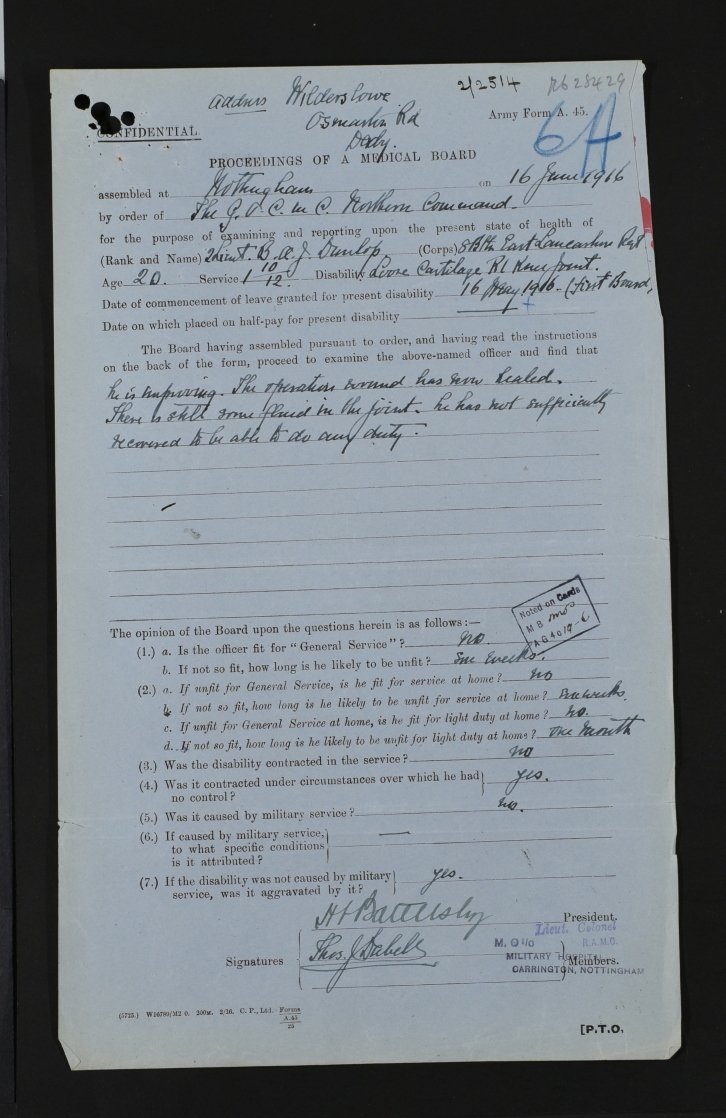 2/2514 R628429
address Wilderslowe
Osmaston Rd
Derby.
Army Form A. 45.
CONFIDENTIAL.
6A
PROCEEDINGS OF A MEDICAL BOARD
assembled at Nottingham on 16 June 1916
by order of The G.O.C. in C. Northern Command.
for the purpose of examining and reporting upon the present state of health of
(Rank and Name) 2 Lieut. B. A. J. Dunlop (Corps) 8th East Lancashire Regt
Age 20. Service 1 10/12. Disability Loose Cartilage Rt Knee joint.
Date of commencement of leave granted for present disability 16 May 1916. (First Board)
Date on which placed on half-pay for present disability
The Board having assembled pursuant to order, and having read the instructions
on the back of the form, proceed to examine the above-named officer and find that
he is improving. The operation wound has now healed.
There is still some fluid in the joint. he has not sufficiently
recovered to be able to do any duty.
Noted on Cards
M B
A G 4 a
The opinion of the Board upon the questions herein is as follows:—
(1.) a. Is the officer fit for "General Service"? no.
b. If not so fit, how long is he likely to be unfit? Six weeks.
(2.) a. If unfit for General Service, is he fit for service at home? no
b. If not so fit, how long is he likely to be unfit for service at home? Six weeks.
c. If unfit for General Service at home, is he fit for light duty at home? no.
d. If not so fit, how long is he likely to be unfit for light duty at home? one month
(3.) Was the disability contracted in the service? no
(4.) Was it contracted under circumstances over which he had
no control? yes.
(5.) Was it caused by military service? no.
(6.) If caused by military service,
to what specific conditions —
is it attributed?
(7.) If the disability was not caused by military
service, was it aggravated by it? yes.
President.
Lieut. Colonel
M. O i/c R.A.M.C.
Signatures Thos. J. Dabell
MILITARY HOSPITAL Members.
CARRINGTON, NOTTINGHAM
(5725.) W16789/M2 0. 200M. 2/16. C. P., Ltd. Forms
A.45
25
[P.T.O.